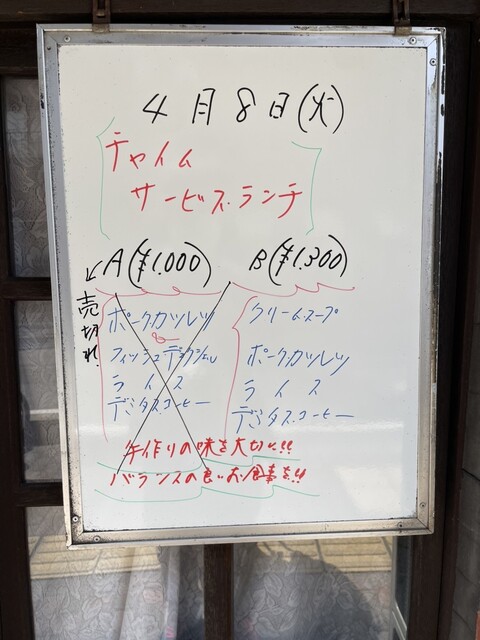 4月8日(火)
チャイム
サービス・ランチ
A(¥1.000)
売切れ!
ポークカツレツ
&
ライス
デミタスコーヒー
B(¥1.300)
クリームスープ
ポークカツレツ
ライス
デミタスコーヒー
手作りの味を大切に!!
バランスの良いお食事を!!